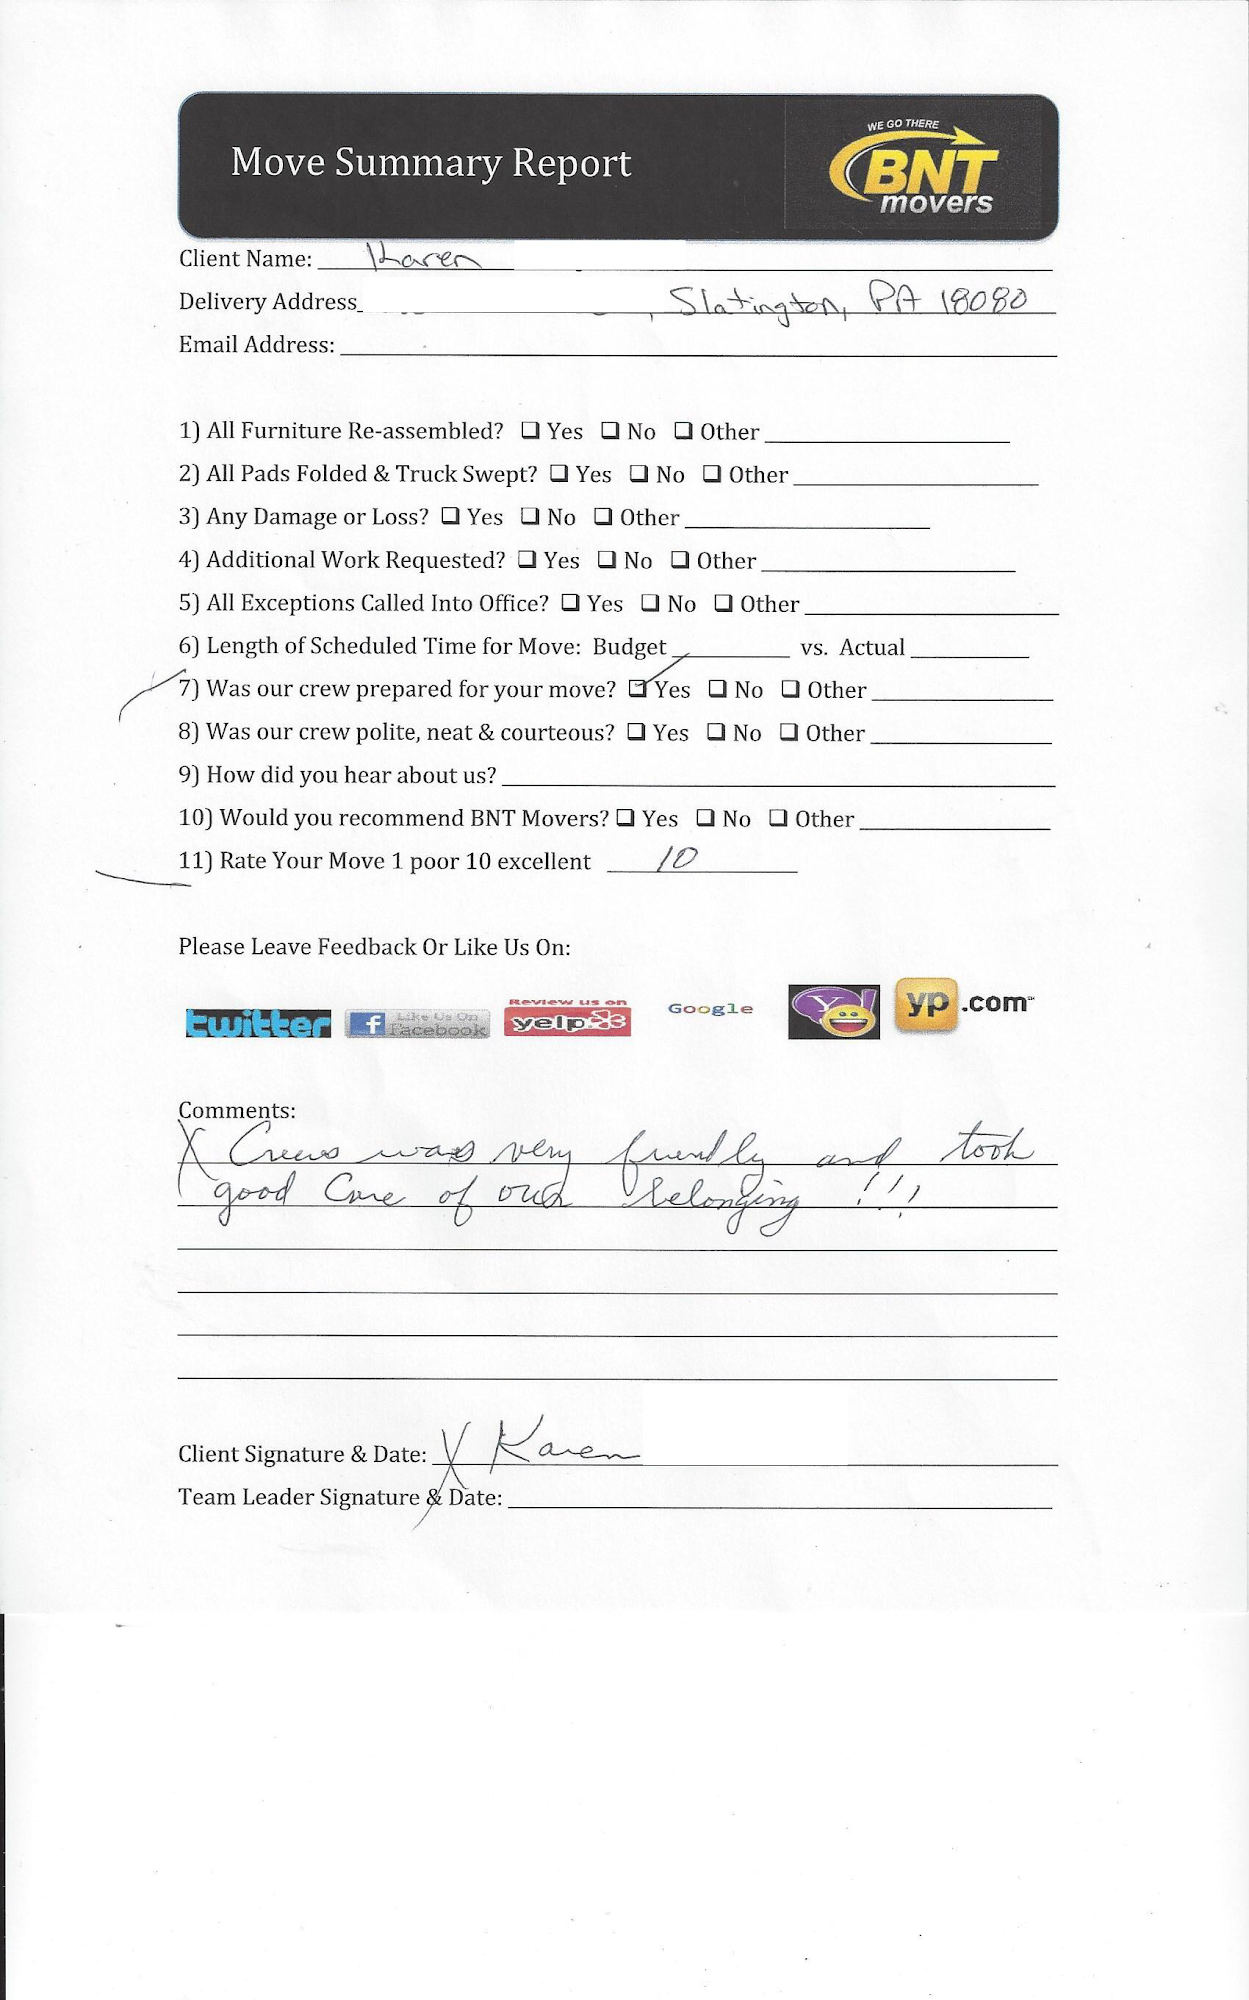 Move Summary Report
WE GO THERE
BNT
movers
Client Name: Karen
Delivery Address , Slatington, PA 18080
Email Address:
1) All Furniture Re-assembled? ❑ Yes ❑ No ❑ Other
2) All Pads Folded & Truck Swept? ❑ Yes ❑ No ❑ Other
3) Any Damage or Loss? ❑ Yes ❑ No ❑ Other
4) Additional Work Requested? ❑ Yes ❑ No ❑ Other
5) All Exceptions Called Into Office? ❑ Yes ❑ No ❑ Other
6) Length of Scheduled Time for Move: Budget vs. Actual
7) Was our crew prepared for your move? ☑ Yes ❑ No ❑ Other
8) Was our crew polite, neat & courteous? ❑ Yes ❑ No ❑ Other
9) How did you hear about us?
10) Would you recommend BNT Movers? ❑ Yes ❑ No ❑ Other
11) Rate Your Move 1 poor 10 excellent 10
Please Leave Feedback Or Like Us On:
twitter f Like Us On Facebook Review us on yelp Google Y! yp.com
Comments:
X Crews was very friendly and took
good Care of our belonging !!!
Client Signature & Date: X Karen
Team Leader Signature & Date: